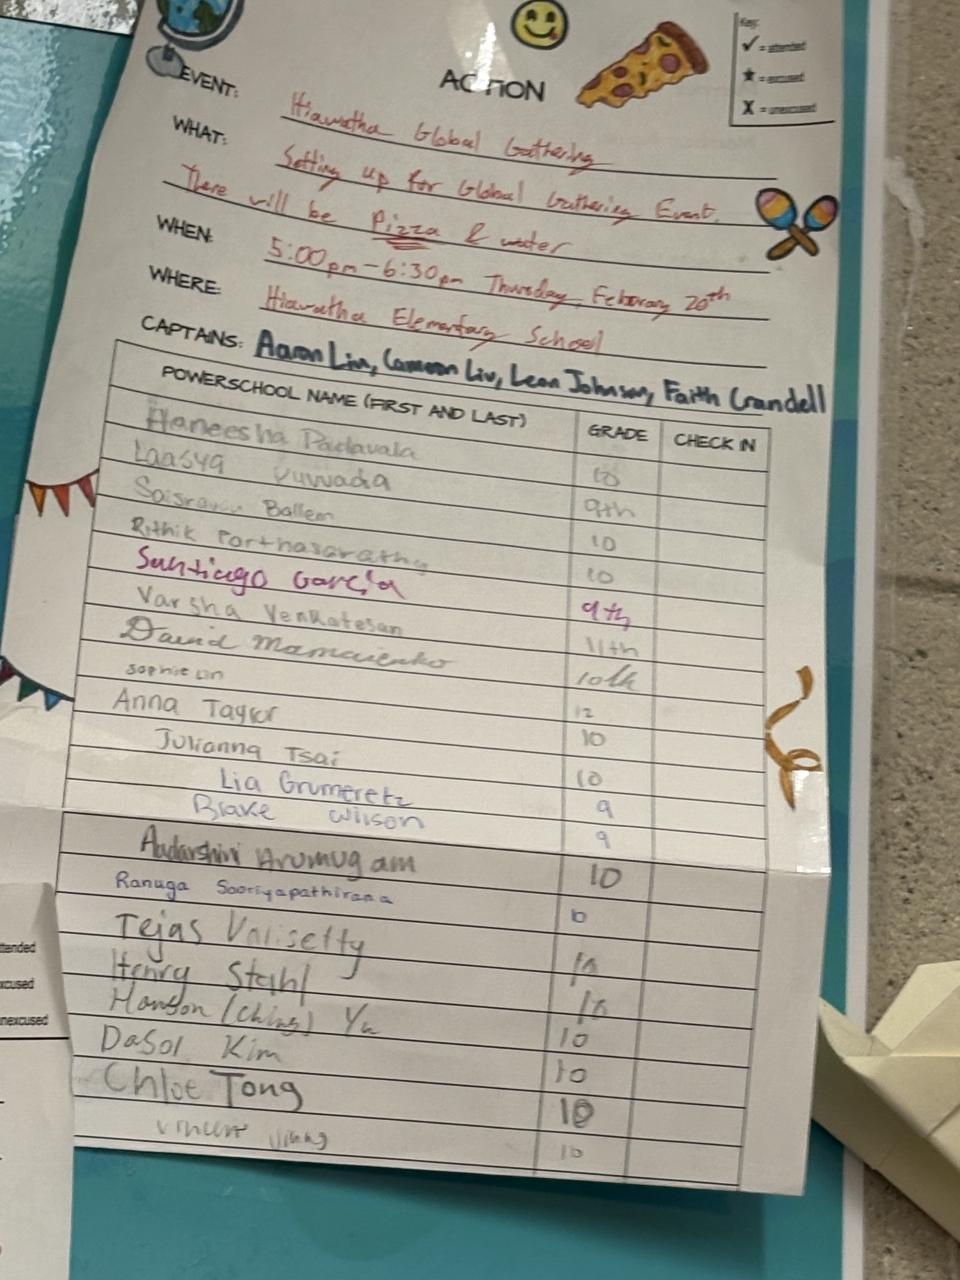 Key:
✓ = attended
★ = excused
X = unexcused
ACTION
EVENT: Hiawatha Global Gathering
WHAT: Setting up for Global Gathering Event.
There will be Pizza & water
WHEN: 5:00pm-6:30pm Thursday, Feborary 20th
WHERE: Hiawatha Elementary School
CAPTAINS: Aaron Lin, Cameron Liv, Leon Johnson, Faith Crandell
POWERSCHOOL NAME (FIRST AND LAST) GRADE CHECK IN
Haneesha Padavala 10
Laasya Vuwada 9th
Saisravan Ballem 10
Rithik Parthasarathy 10
Santiago García 9th
Varsha Venkatesan 11th
David Mamaienko 10th
Sophie Lin 12
Anna Taylor 10
Julianna Tsai 10
Lia Grumeretz 9
Blake Wilson 9
Aadarshini Arumugam 10
Ranuga Sooriyapathirana 10
Tejas Valisetty 10
Henry Stahl 10
Hanson (Ching) Yu 10
DaSol Kim 10
Chloe Tong 10
Vincent 10
tended
xcused
nexcused